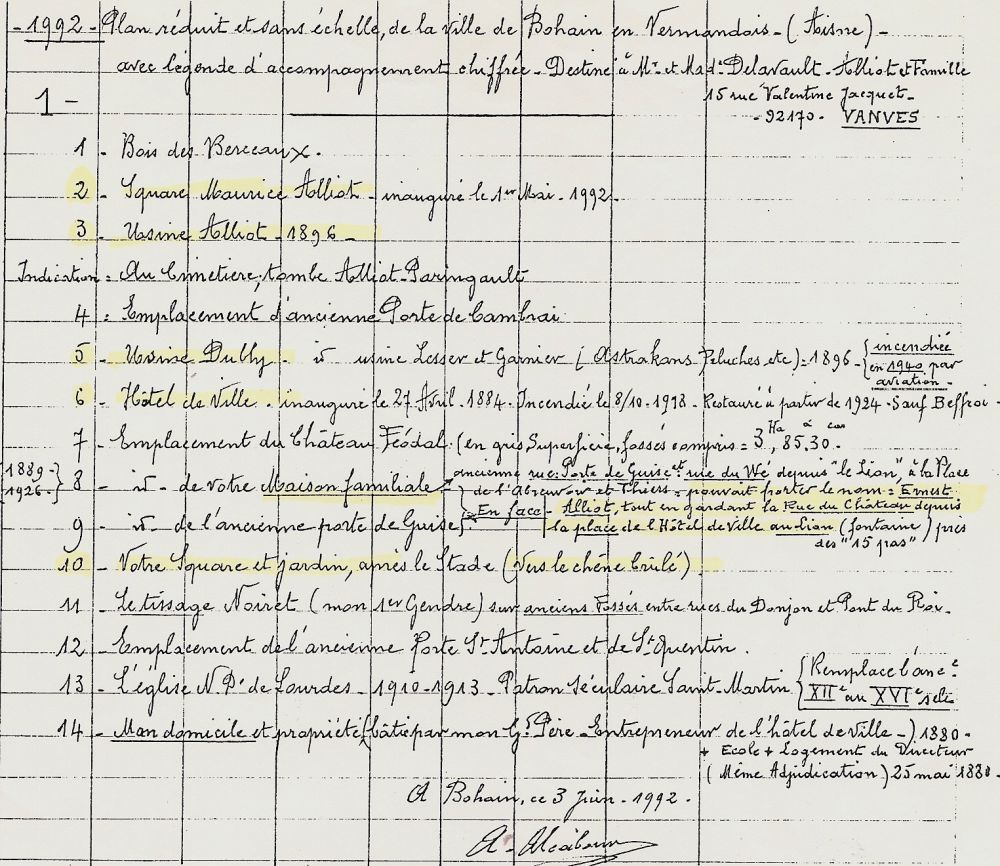 - 1992 - Plan réduit et sans échelle, de la ville de Bohain en Vermandois - (Aisne) -
avec légende d'accompagnement chiffrée - Destiné à Mr. et Mad. Delavault - Alliot et Famille
15 rue Valentine Jacquet -
- 92170 - VANVES
1 -
1 - Bois des Berceaux.
2 - Square Maurice Alliot - inauguré le 1er Mai - 1992 -
3 - Usine Alliot - 1896 -
Indication = Au Cimetière, tombe Alliot-Paringault
4 = Emplacement d'ancienne Porte de Cambrai
5 - Usine Dubly - id usine Lesser et Garnier (Astrakans Peluches etc) = 1896 - { incendiée
en 1940 par
aviation -
6 - Hôtel de Ville - inauguré le 27 Avril - 1884 - Incendié le 8/10 - 1918 - Restauré à partir de 1924 - Sauf Beffroi -
7 - Emplacement du Château Féodal (en gris, Superficie, fossés compris = 3 Ha, 85 a 30 cas -
{1889 - 1926 -} 8 - id - de votre Maison familiale = ancienne rue: Porte de Guise et rue du Wé depuis "le Lion" à la Place
de l'Abreuvoir et Thiers = pouvait porter le nom = Ernest
En face Alliot, tout en gardant la Rue du Château depuis
9 - id - de l'ancienne porte de Guise } la place de l'Hôtel de Ville au Lion (fontaine) près
des "15 pas")
10 - Votre Square et jardin, après le Stade (Vers le chêne brûlé)
11 - Le tissage Noiret (mon 1er Gendre) sur anciens Fossés entre rues du Donjon et Pont du Roi.
12 - Emplacement de l'ancienne Porte St. Antoine et de St. Quentin.
13 - L'église N.D. de Lourdes - 1910-1913 - Patron séculaire Saint-Martin { Remplace l'anc.e
XIIe au XVIe scle
14 - Mon domicile et propriété (bâtie par mon Gd Père - Entrepreneur de l'hôtel de Ville -) 1880 -
+ Ecole + Logement du Directeur
(Même Adjudication) 25 mai 1880 -
A Bohain, ce 3 Juin - 1992 -